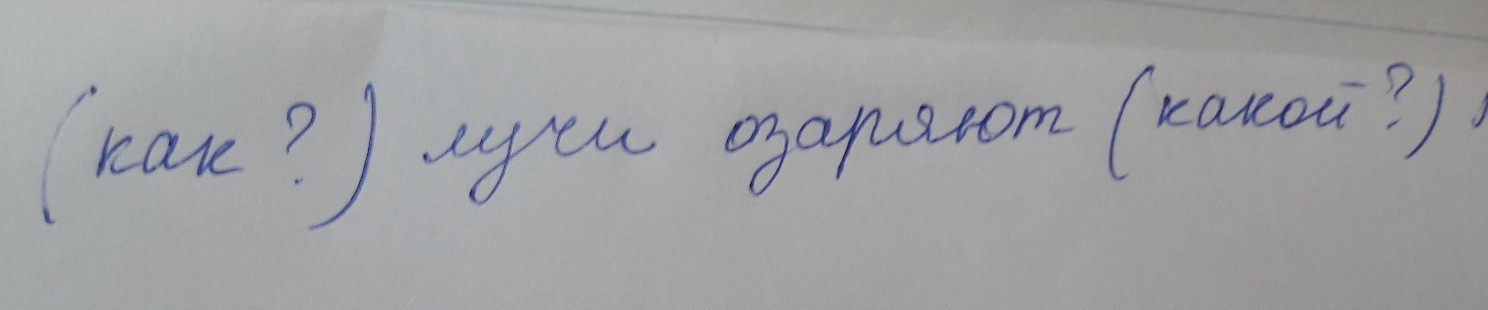 (как?) лучи озаряют (какой?)